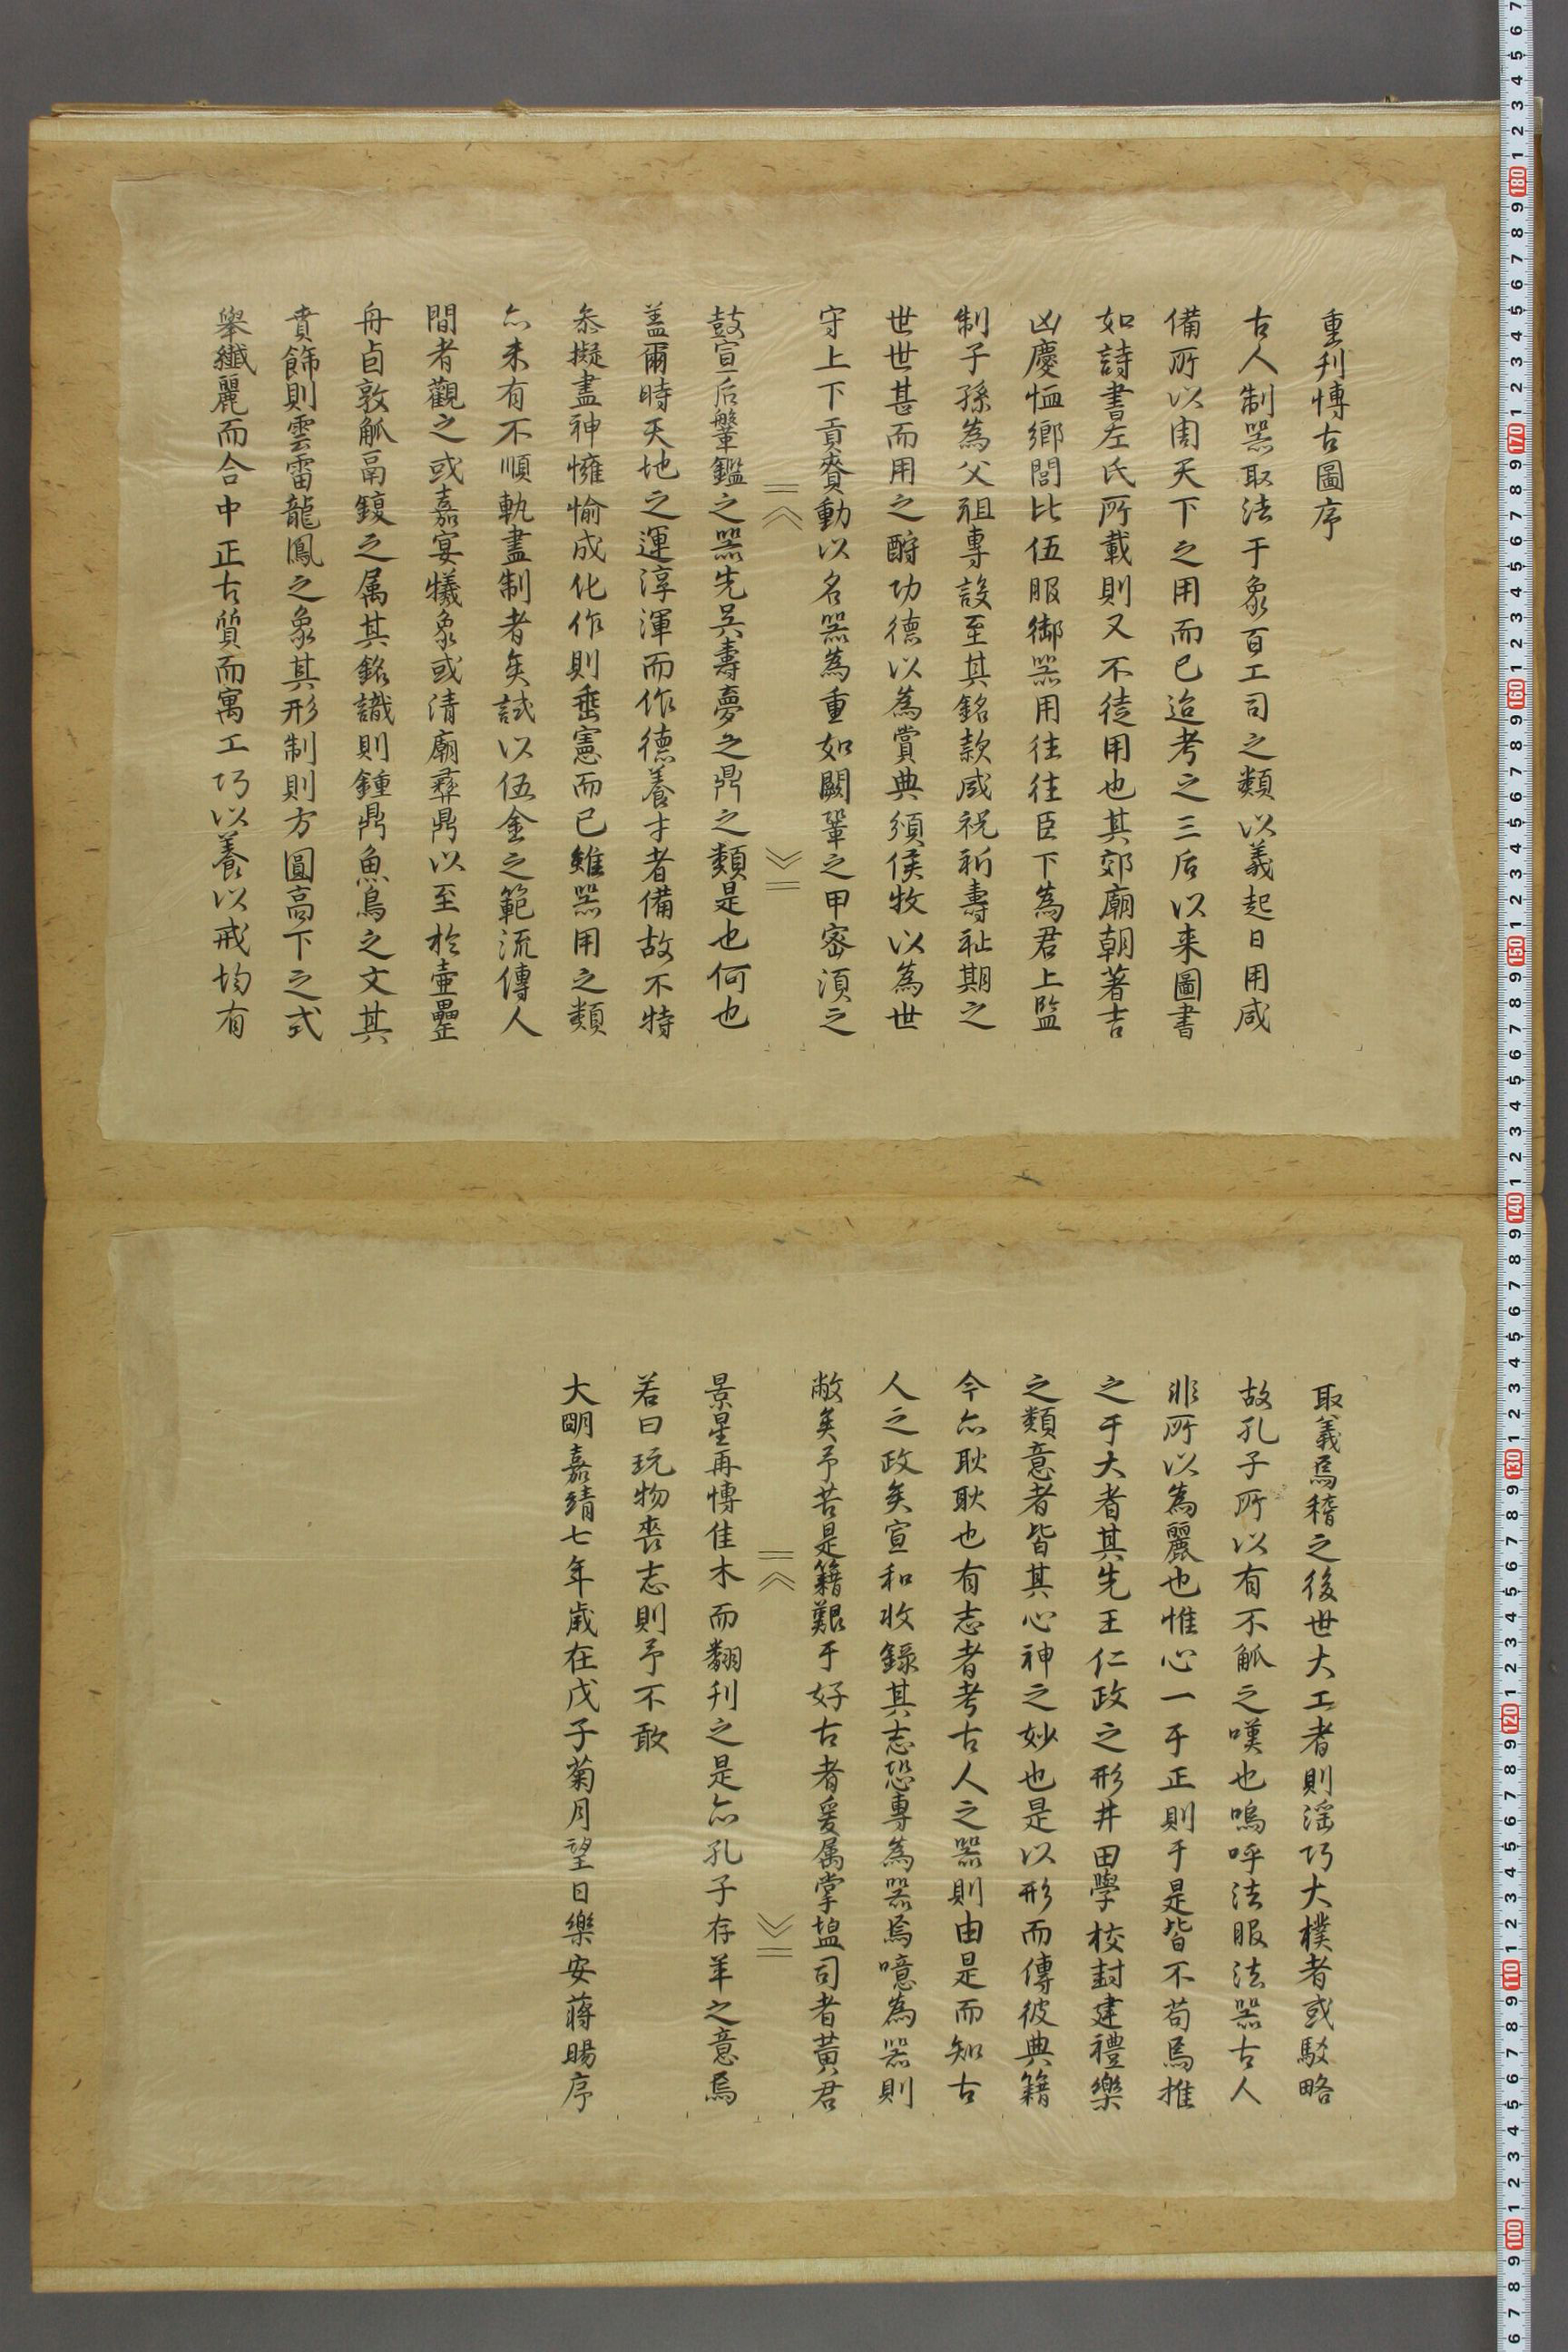 重刊博古圖序
古人制器取法于象百工司之類以義起日用咸
備所以周天下之用而已迨考之三后以来圖書
如詩書左氏所載則又不徒用也其郊廟朝著吉
凶慶恤鄉閭比伍服御器用往往臣下為君上監
制子孫為父祖專設至其銘款咸祝祈壽祉期之
世世甚而用之酧功德以為賞典須侯牧以為世
守上下貢賚動以名器為重如闕鞏之甲密須之
鼓宣后鞶鑑之器先吴壽夢之鼎之類是也何也
盖爾時天地之運淳渾而作德養才者備故不特
叅擬盡神慵愉成化作則垂憲而已雖器用之類
亦未有不順軌盡制者矣試以伍金之範流傳人
間者觀之或嘉宴犧象或清廟彛鼎以至於壷罍
舟卣敦觚鬲鍑之属其銘識則鍾鼎魚鳥之文其
賁飾則雲雷龍鳳之象其形制則方圓高下之式
舉纎麗而合中正古質而寓工巧以養以戒均有
取義焉稽之後世大工者則滛巧大樸者或駁略
故孔子所以有不觚之嘆也嗚呼法服法器古人
非所以為麗也惟心一于正則于是皆不苟焉推
之于大者其先王仁政之形井田學校封建禮樂
之類意者皆其心神之妙也是以形而傳彼典籍
今亦耿耿也有志者考古人之器則由是而知古
人之政矣宣和收錄其志恐專為器焉噫為器則
敝矣予苦是籍艱于好古者爰属掌塩司者黃君
景星再博佳木而翻刊之是亦孔子存羊之意焉
若曰玩物喪志則予不敢
大明嘉靖七年歲在戊子菊月望日樂安蔣暘序
7 6 5 4 3 2 1 180 9 8 7 6 5 4 3 2 1 170 9 8 7 6 5 4 3 2 1 160 9 8 7 6 5 4 3 2 1 150 9 8 7 6 5 4 3 2 1 140 9 8 7 6 5 4 3 2 1 130 9 8 7 6 5 4 3 2 1 120 9 8 7 6 5 4 3 2 1 110 9 8 7 6 5 4 3 2 1 100 9 8 7 6